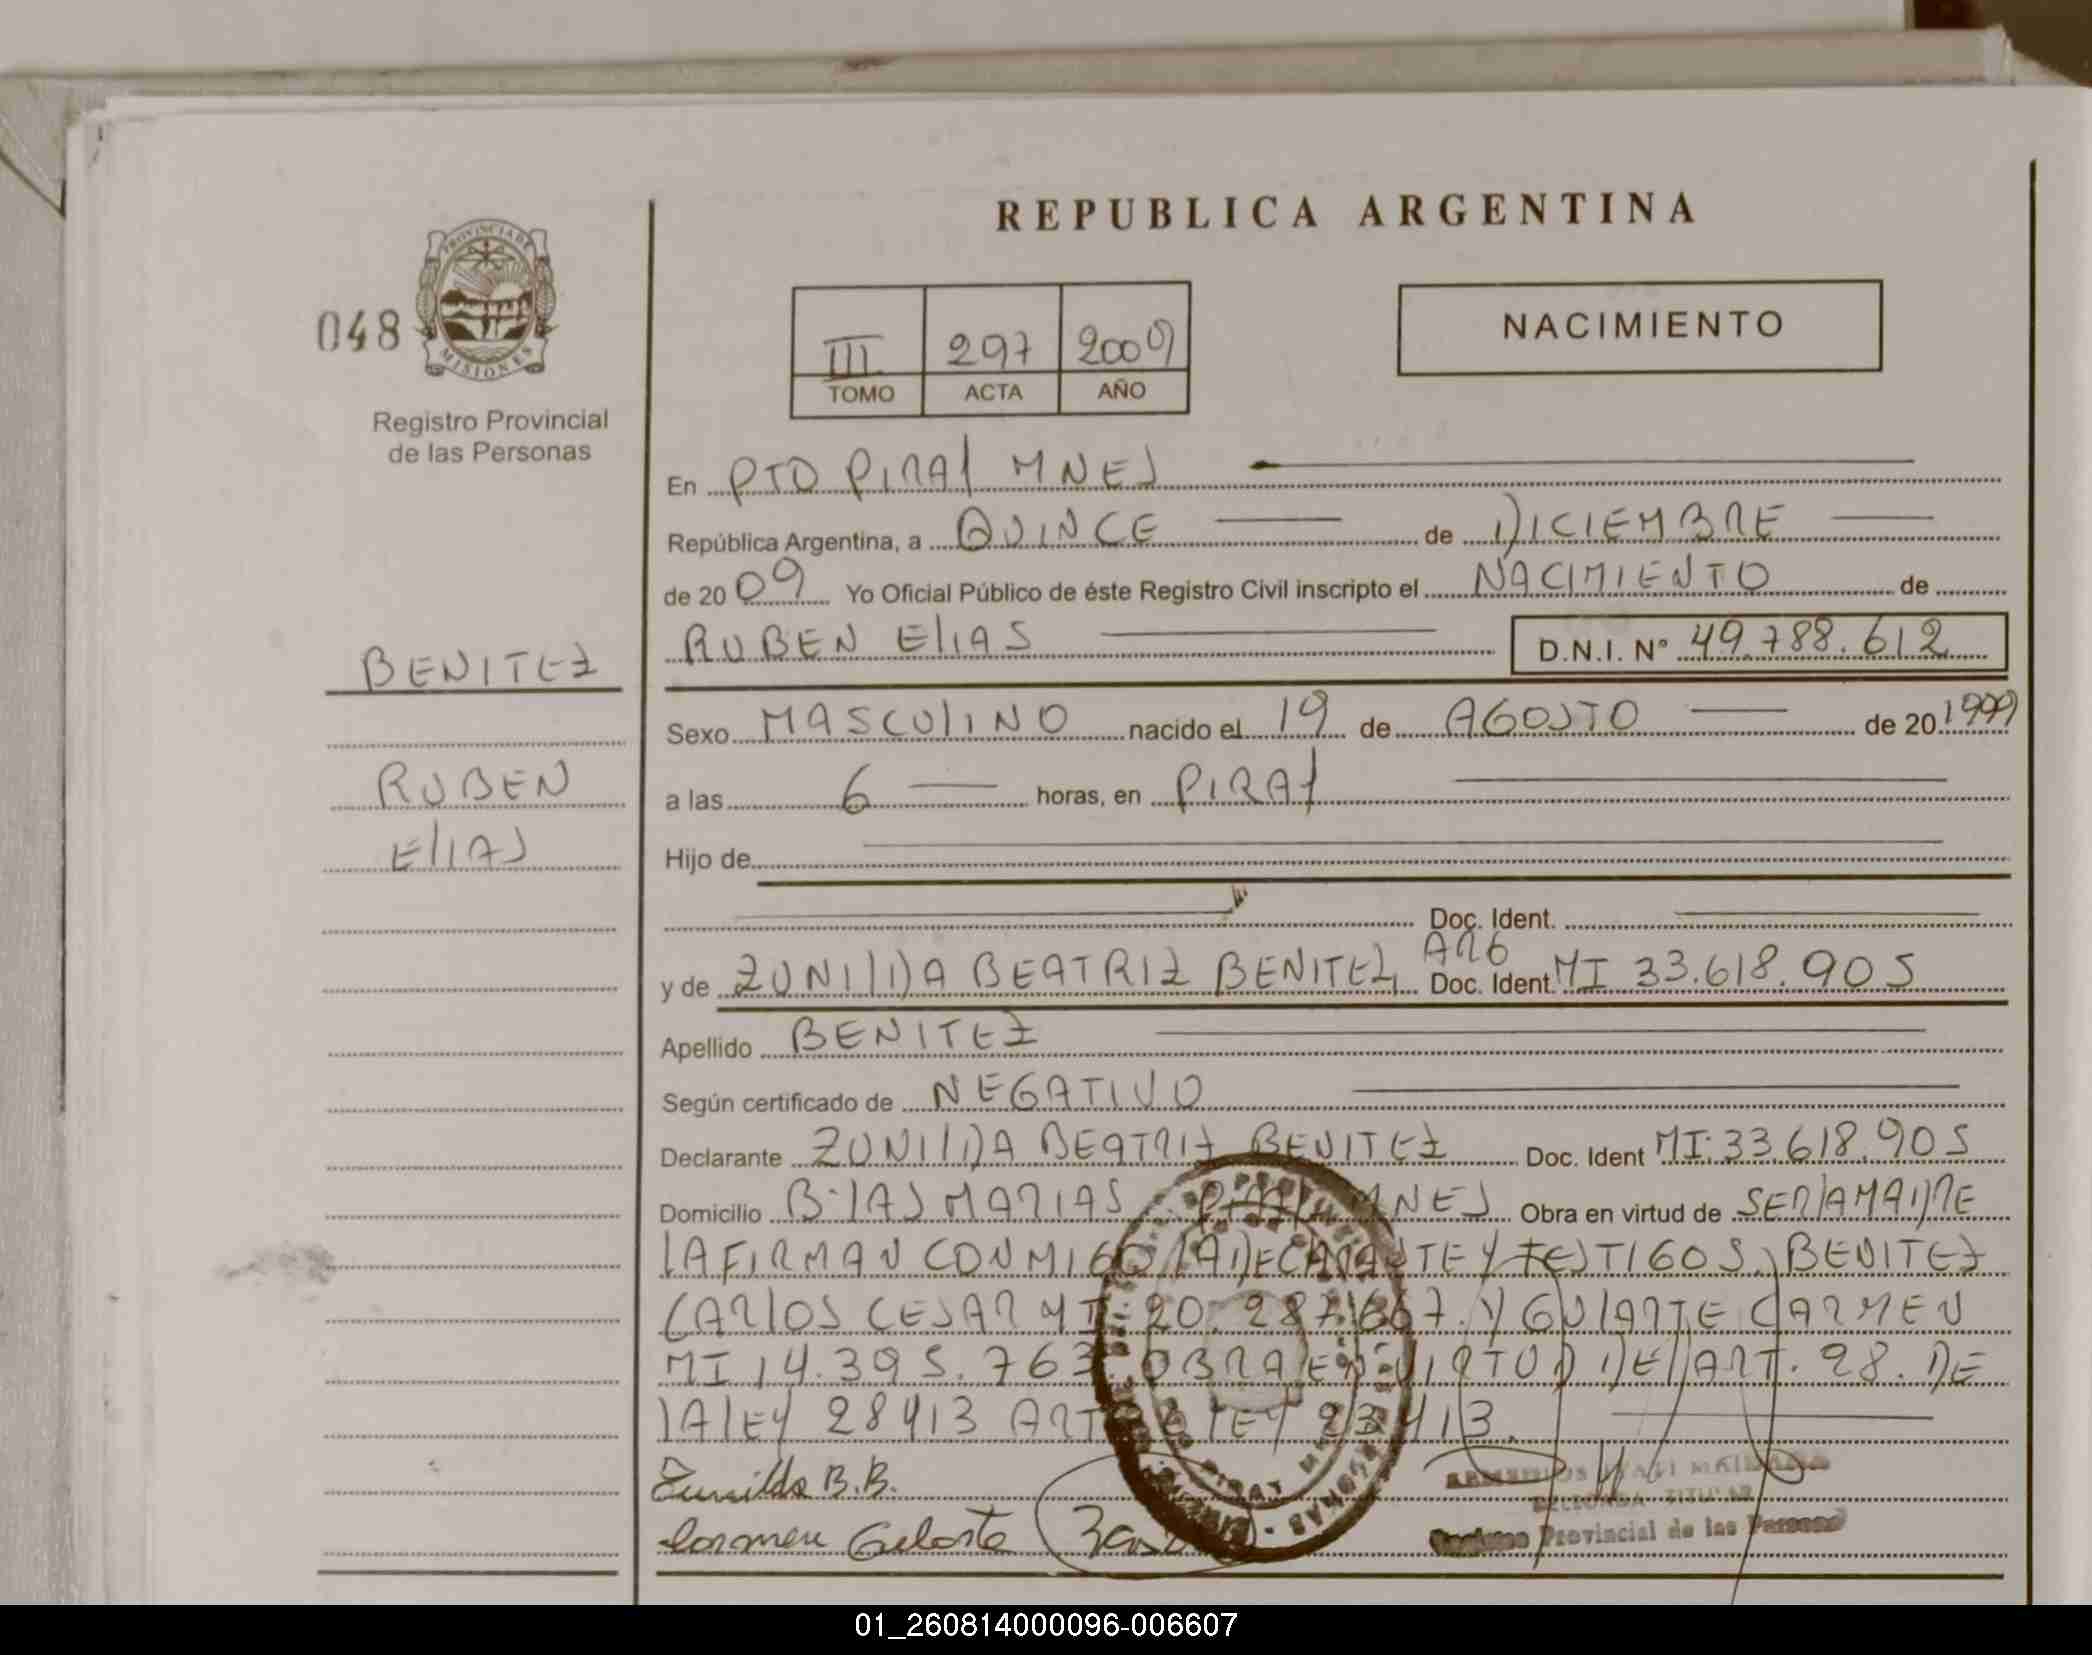 REPUBLICA ARGENTINA
PROVINCIA DE
MISIONES
048
Registro Provincial
de las Personas
III 297 2009
TOMO ACTA AÑO
NACIMIENTO
En PTO PIRAY MNES
República Argentina, a QUINCE de DICIEMBRE
de 20 09 Yo Oficial Público de éste Registro Civil inscripto el NACIMIENTO de
RUBEN ELIAS D.N.I. Nº 49.788.612
BENITEZ
RUBEN
ELIAS
Sexo MASCULINO nacido el 19 de AGOSTO de 20 1999
a las 6 horas, en PIRAY
Hijo de
Doc. Ident.
y de ZUNILDA BEATRIZ BENITEZ ARG Doc. Ident MI 33.618.905
Apellido BENITEZ
Según certificado de NEGATIVO
Declarante ZUNILDA BEATRIZ BENITEZ Doc. Ident MI: 33.618.905
Domicilio B: LAS MARIAS PIRAY MNES Obra en virtud de SER LA MADRE
LA FIRMAN CONMIGO LA DECLARANTE Y TESTIGOS BENITEZ
CARLOS CESAR MI: 20.287.667 Y GULARTE CARMEN
MI 14.395.763 OBRA EN VIRTUD DEL ART. 28. DE
LA LEY 28413 ART LEY 23413.
Zunilda B.B.
Carmen
DELEGADA TITULAR
Registro Provincial de las Personas
01_260814000096-006607